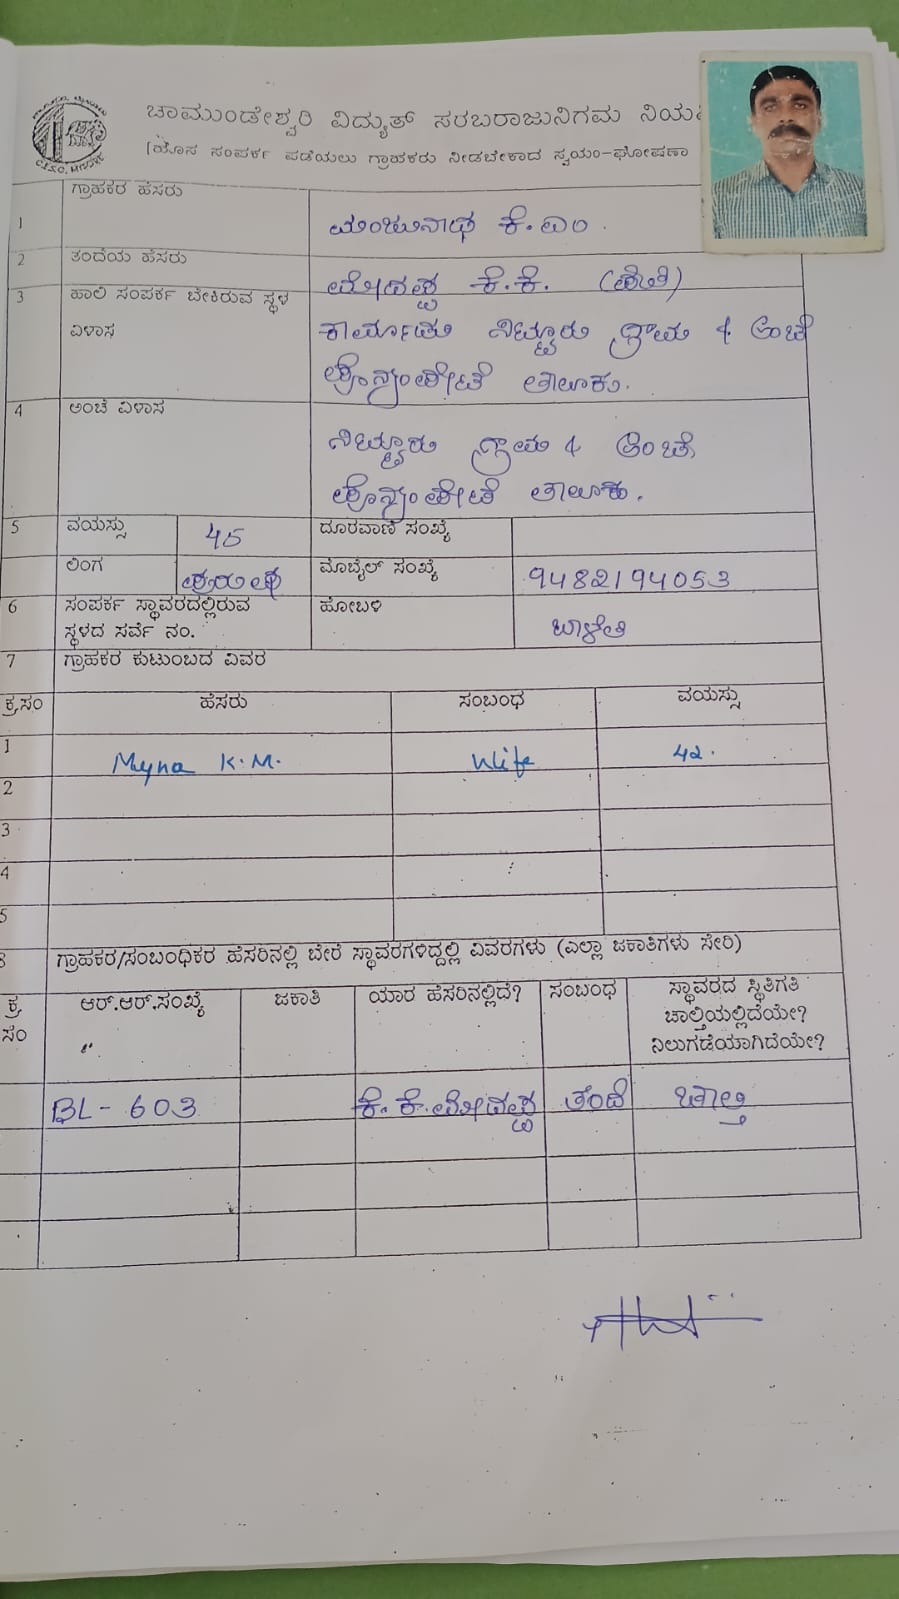 ಚಾಮುಂಡೇಶ್ವರಿ ವಿದ್ಯುತ್ ಸರಬರಾಜುನಿಗಮ
(ಹೊಸ ಸಂಪರ್ಕ ಪಡೆಯಲು ಗ್ರಾಹಕರು ನೀಡಬೇಕಾದ ಸ್ವಯಂ-ಘೋಷಣಾ
C.E.S.C. MYSORE
1 ಗ್ರಾಹಕರ ಹೆಸರು ಮಂಜುನಾಥ ಕೆ.ಎಂ.
2 ತಂದೆಯ ಹೆಸರು ಕೆ.ಕೆ.
3 ಹಾಲಿ ಸಂಪರ್ಕ ಬೇಕಿರುವ ಸ್ಥಳ ನಿಟ್ಟೂರು ಗ್ರಾಮ & ಅಂಚೆ
ವಿಳಾಸ ಪೊನ್ನಂಪೇಟೆ ತಾಲೂಕು.
4 ಅಂಚೆ ವಿಳಾಸ ನಿಟ್ಟೂರು ಗ್ರಾಮ & ಅಂಚೆ
ಪೊನ್ನಂಪೇಟೆ ತಾಲೂಕು.
5 ವಯಸ್ಸು 45 ದೂರವಾಣಿ ಸಂಖ್ಯೆ
ಲಿಂಗ ಪುರುಷ ಮೊಬೈಲ್ ಸಂಖ್ಯೆ 9482194053
6 ಸಂಪರ್ಕ ಸ್ಥಾವರದಲ್ಲಿರುವ ಹೋಬಳಿ ಬಾಳೆಲೆ
ಸ್ಥಳದ ಸರ್ವೆ ನಂ.
7 ಗ್ರಾಹಕರ ಕುಟುಂಬದ ವಿವರ
ಕ್ರ.ಸಂ ಹೆಸರು ಸಂಬಂಧ ವಯಸ್ಸು
1 Myna K.M. Wife 42.
2
3
4
5
8 ಗ್ರಾಹಕರ/ಸಂಬಂಧಿಕರ ಹೆಸರಿನಲ್ಲಿ ಬೇರೆ ಸ್ಥಾವರಗಳಿದ್ದಲ್ಲಿ ವಿವರಗಳು (ಎಲ್ಲಾ ಜಕಾತಿಗಳು ಸೇರಿ)
ಕ್ರ ಆರ್.ಆರ್.ಸಂಖ್ಯೆ ಜಕಾತಿ ಯಾರ ಹೆಸರಿನಲ್ಲಿದೆ? ಸಂಬಂಧ ಸ್ಥಾವರದ ಸ್ಥಿತಿಗತಿ
ಸಂ ಚಾಲ್ತಿಯಲ್ಲಿದೆಯೇ?
ನಿಲುಗಡೆಯಾಗಿದೆಯೇ?
BL - 603 ಕೆ.ಕೆ. ತಂದೆ ಚಾಲ್ತಿ